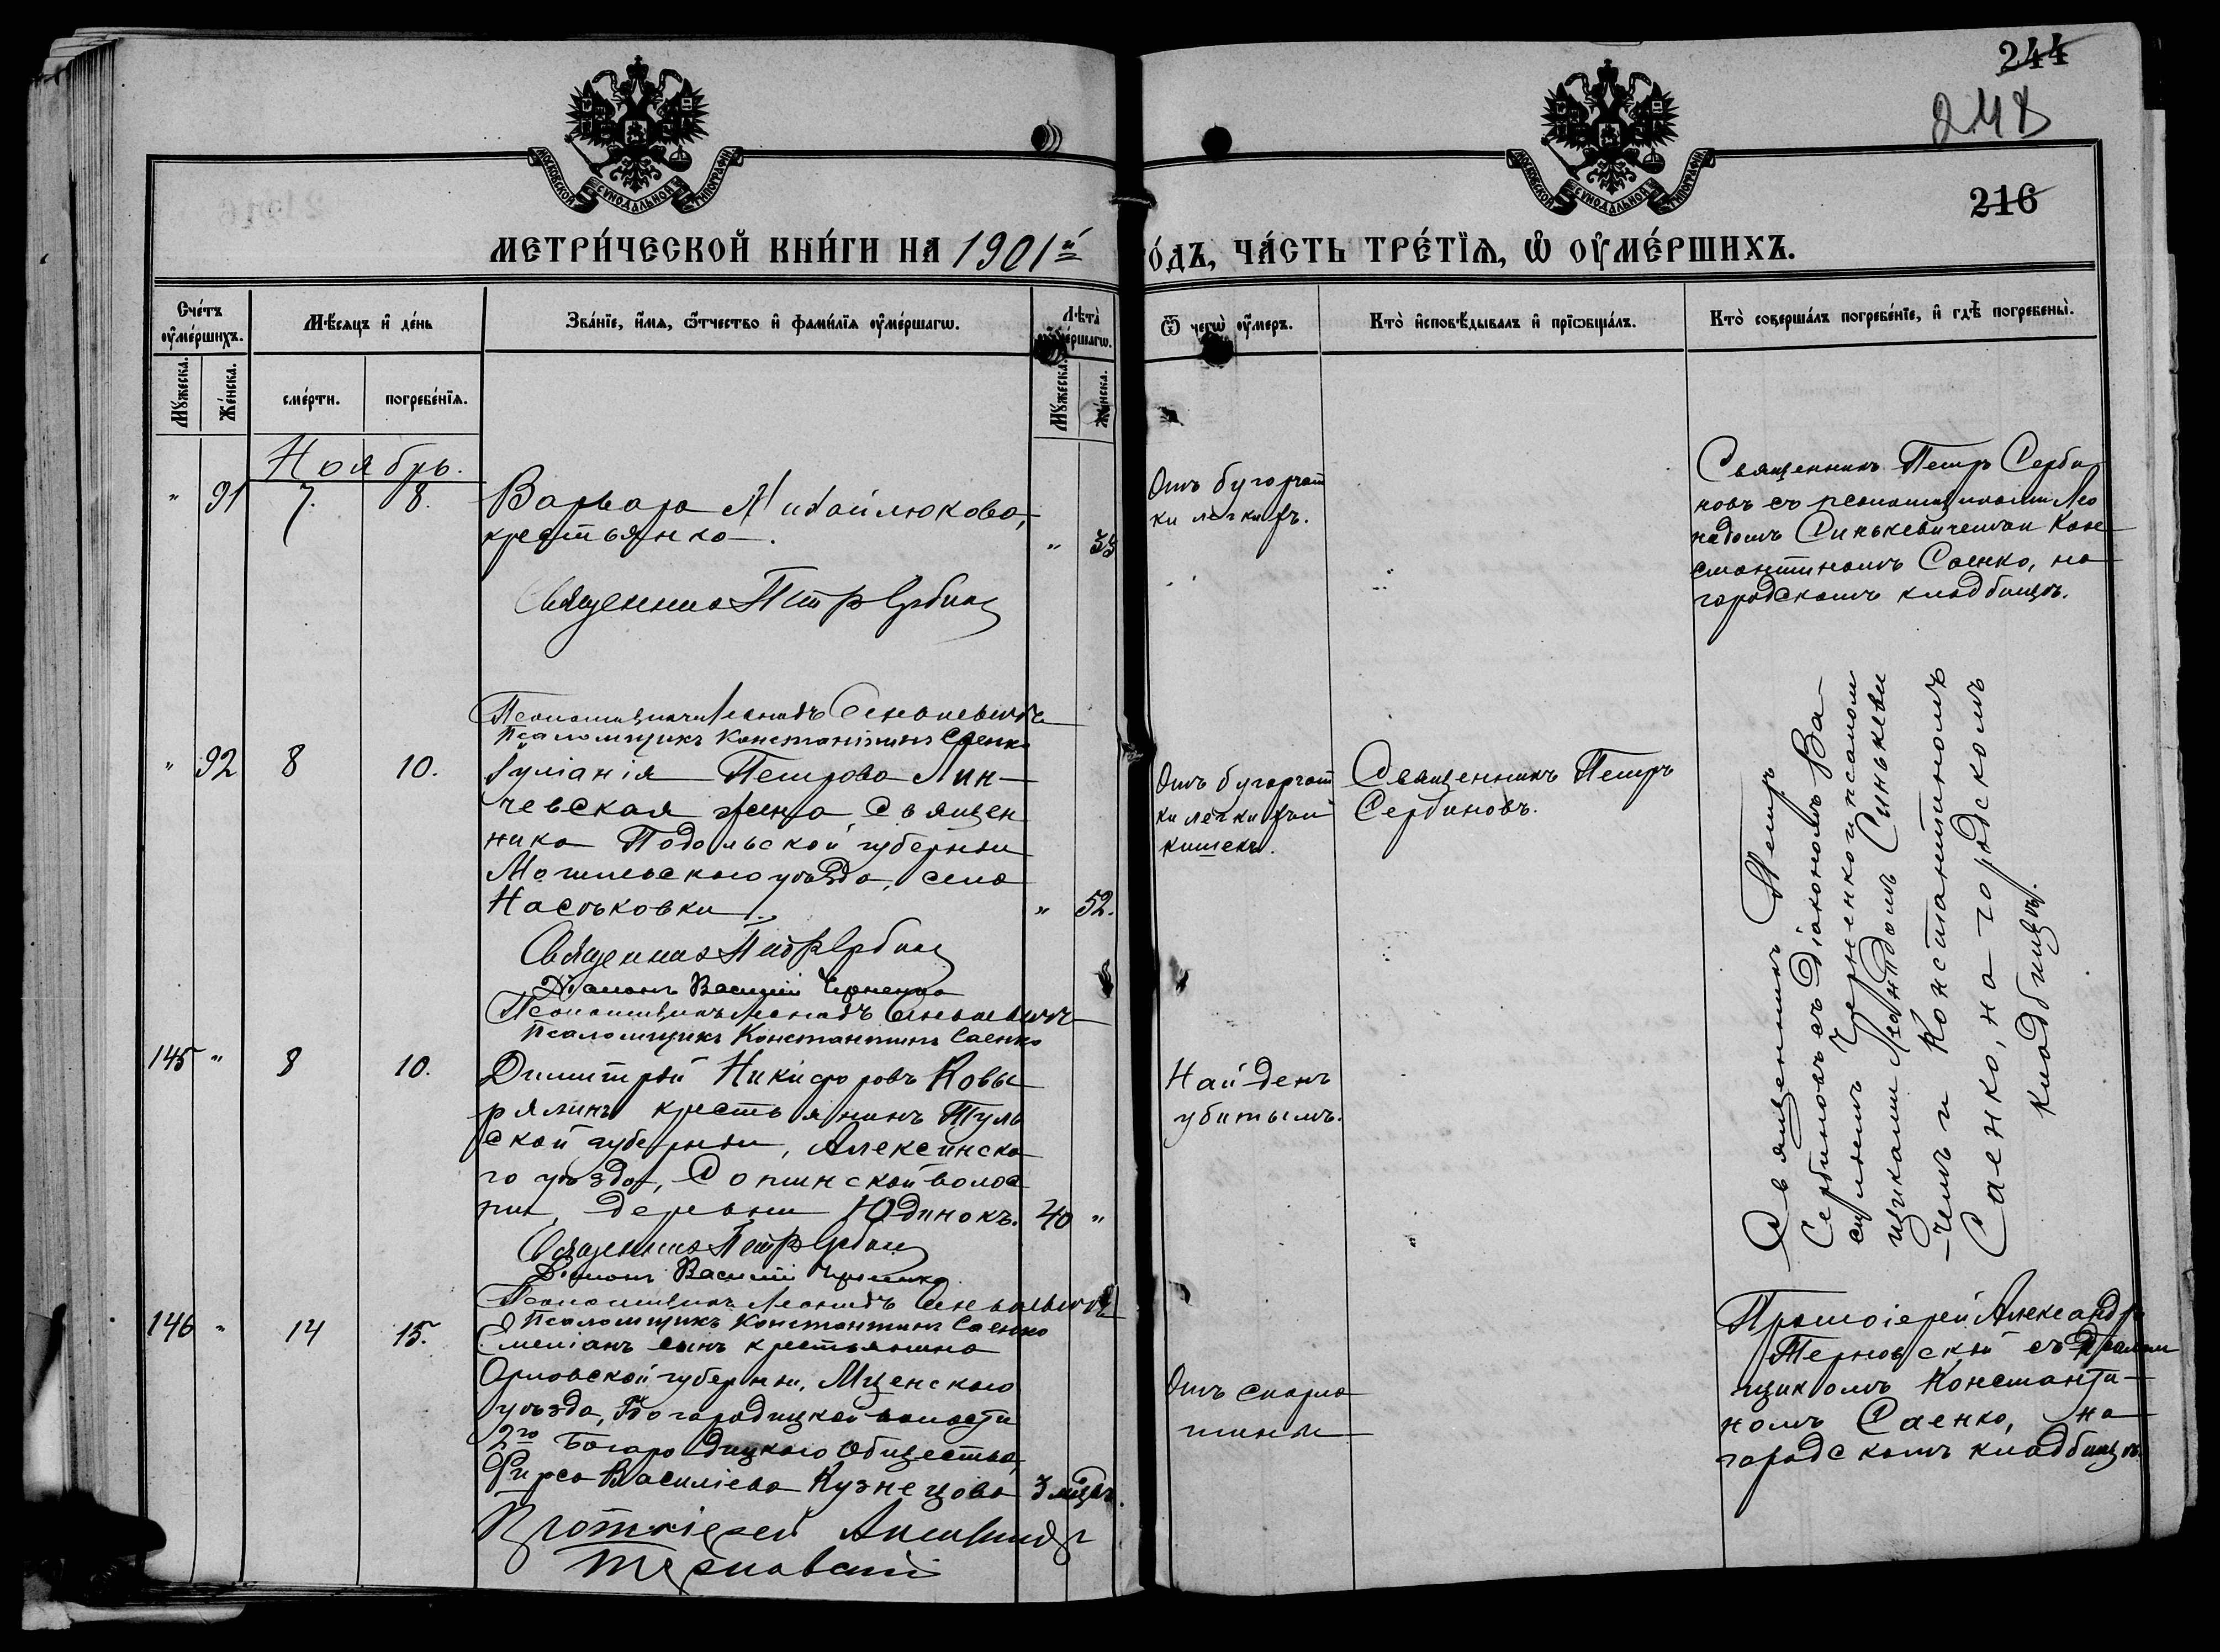 244
248
216
МОСКОВСКОЙ СѴНОДАЛЬНОЙ ТИПОГРАФІИ
МОСКОВСКОЙ СѴНОДАЛЬНОЙ ТИПОГРАФІИ
МЕТРИ́ЧЕСКОЙ КНИ́ГИ НА 1901й
О́ДЪ, ЧА́СТЬ ТРЕ́ТЇѦ, Ѽ ОУ҆МЕ́РШИХЪ.
Сче́тъ оу҆ме́ршихъ.
Мѣ́сяцъ и҆ де́нь
Зва́нїе, и҆́мя, ѻ҆́тчество и҆ фами́лїя оу҆ме́ршагѡ.
Лѣ́та̀ оу҆ме́ршагѡ.
Ѿ чегѡ̀ оу҆́меръ.
Кто̀ и҆сповѣ́дывалъ и҆ прїѡбща́лъ.
Кто̀ соверша́лъ погребе́нїе, и҆ гдѣ̀ погребены̀.
Мꙋ́жеска.
Же́нска.
сме́рти.
погребе́нїя.
Мꙋ́жеска.
Же́нска.
Ноябрь.
" 91 7. 8.
Варвара Михайлюкова,
крестьянка. " 33
Священник Петр Сербинов
Отъ бугорчат
ки легкихъ.
Священникъ Петръ Серби
новъ съ псаломщиками Лео
нидомъ Синькевичемъ и Кон
стантиномъ Саенко, на
городскомъ кладбищѣ.
Псаломщикъ Леонидъ Синькевичъ
Псаломщикъ Константинъ Саенко
" 92 8 10.
Іуліанія Петрова Лин-
чевская жена Священ
ника Подольской губерніи
Могилевскаго уѣзда, села
Насѣковки. " 52.
Священник Петр Сербинов
Діаконъ Василій Черненко
Псаломщикъ Леонидъ Синькевичъ
Псаломщикъ Константинъ Саенко
Отъ бугорчат
ки легкихъ и
кишекъ.
Священникъ Петръ
Сербиновъ.
Священникъ Петръ
Сербиновъ съ Діакономъ Ва
силіемъ Черненко и псалом
щиками Леонидомъ Синькеви
чемъ и Константиномъ
Саенко, на городскомъ
кладбищѣ.
145 " 8 10.
Димитрій Никифоровъ Ковы
рялинъ крестьянинъ Туль
ской губерніи, Алексинска
го уѣзда, Сопинской волос
ти, деревни Юдинокъ. 40 "
Священник Петр Сербинов
Діаконъ Василій Черненко
Псаломщикъ Леонидъ Синькевичъ
Псаломщикъ Константинъ Саенко
Найденъ
убитымъ.
146 " 14 15.
Емеліанъ сынъ крестьянина
Орловской губерніи, Мценскаго
уѣзда, Богородицкой волости
2го Богородицкаго Общества,
Фирса Василіева Кузнецова 3 мѣс.
Протоіерей Александр
Терновскій
Отъ скарла
тины
Протоіерей Александръ
Терновскій съ псалом
щикомъ Константи-
номъ Саенко, на
городскомъ кладбищѣ.